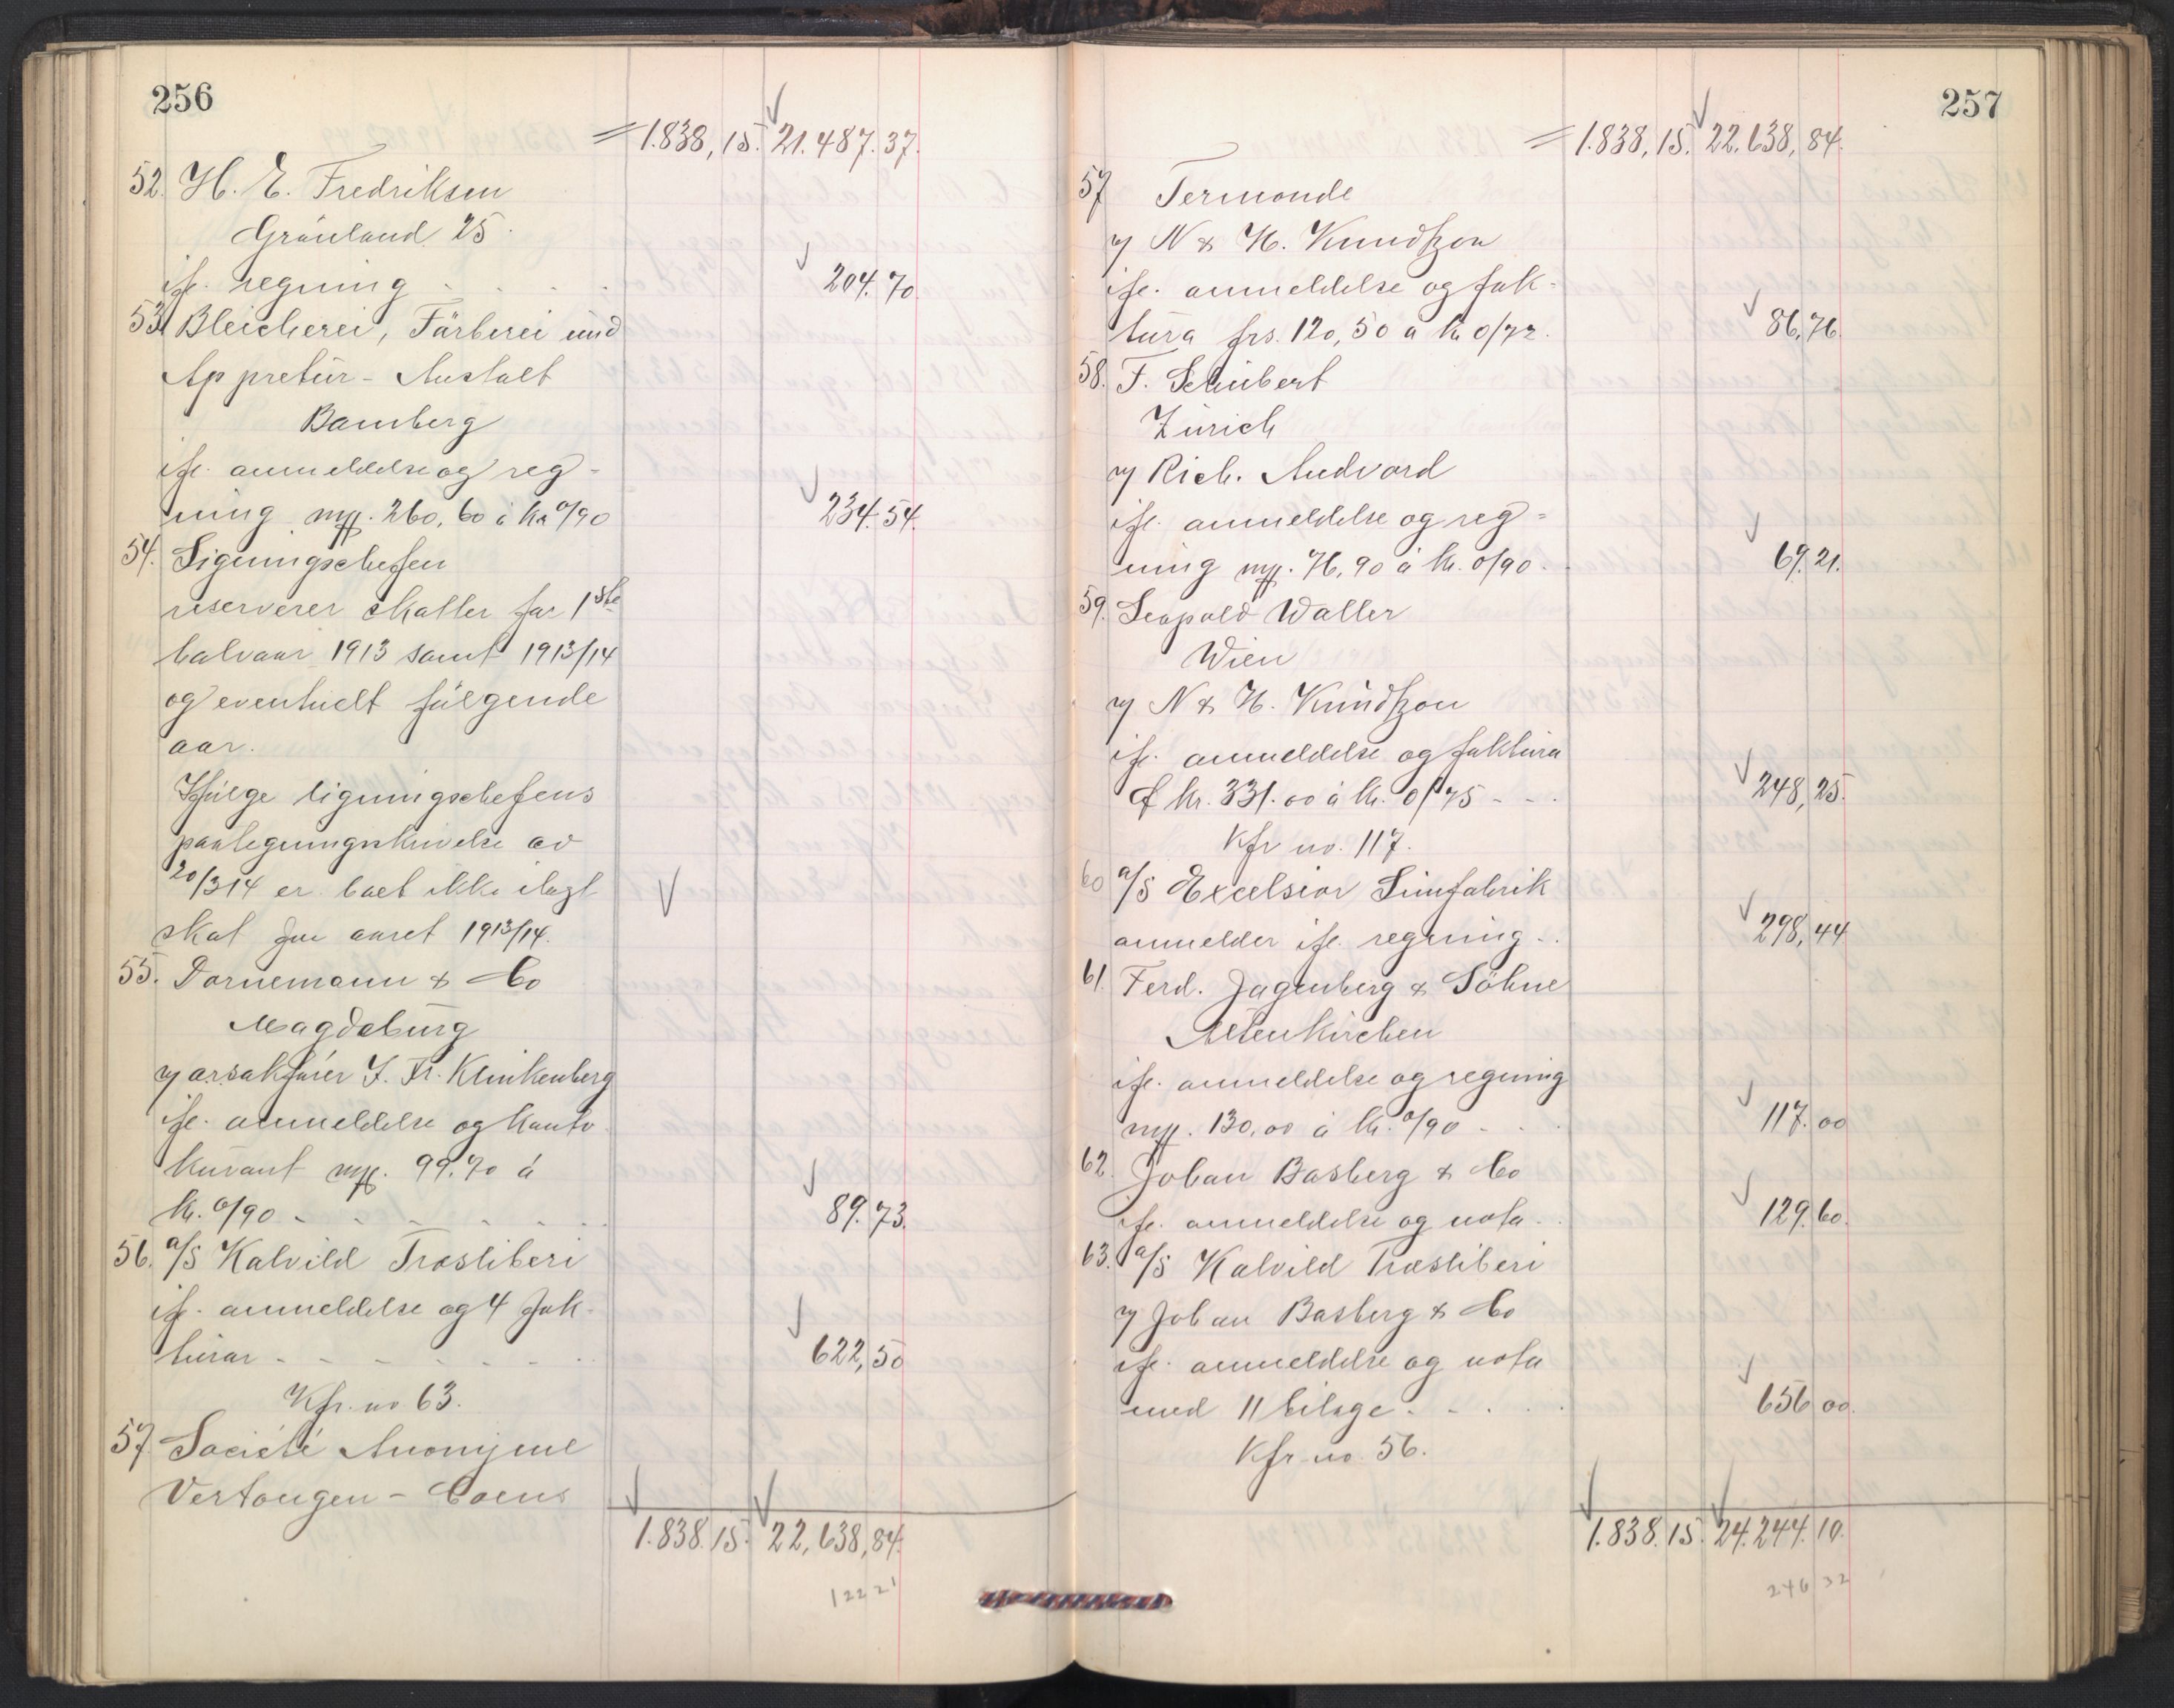 256
= 1.838,15. 21.487.37.
52. H. E. Fredriksen
Grønland 25.
ifl. regning - - - - 204.70.
53. Bleicherei, Färberei und
Appretur - Anstalt
Bamberg
ifl. anmeldelse og reg-
ning mk. 260,60 à kr 0/90 234.54.
54. Ligningschefen
reserverer skatter for 1ste
halvaar 1913 samt 1913/14
og eventuelt følgende
aar.
Ifølge ligningschefens
paalegningsskrivelse av
20/3 14 er boet ikke ilagt
skat for aaret 1913/14.
55. Dornemann & Co
Magdeburg
v/ o.r.sakfører J. Fr. Klinkenberg
ifl. anmeldelse og konto
kurant mk. 99.70 à
kr. 0/90 - - - - - - 89.73.
56. a/s Kalvild Træsliberi
ifl. anmeldelse og 4 fak-
turar - - - - - - - 622,50
Kfr. no 63.
57. Société Anonyme
Vertongen - Coens
1.838.15. 22,638,84.
122 21
257
= 1.838,15. 22.638,84.
57 Termonde
v/ N & H. Knudtzon
ifl. anmeldelse og fak-
tura frs. 120,50 à kr 0/72. 86,76.
58. F. Schubert
Zürich
v/ Rich. Andvord
ifl. anmeldelse og reg-
ning mk. 76,90 à kr. 0/90. 69.21.
59. Leopold Waller
Wien
v/ N & H. Knudtzon
ifl. anmeldelse og faktura
kr. 331.00 à kr. 0/75 - - . 248,25.
Kfr no. 117.
60 a/s Excelsior Limfabrik
anmelder ifl. regning - . 298,44
61. Ferd. Jagenberg & Söhne
Altenkirchen
ifl. anmeldelse og regning
mk. 130,00 à kr. 0/90 - - . 117.00
62. Johan Basberg & Co
ifl. anmeldelse og nota. . 129.60.
63. a/s Kalvild Træsliberi
v/ Johan Basberg & Co
ifl. anmeldelse og nota
med 11 bilage - - . . . 656 00.
Kfr no. 56.
1.838.15. 24.244.10.
246 32